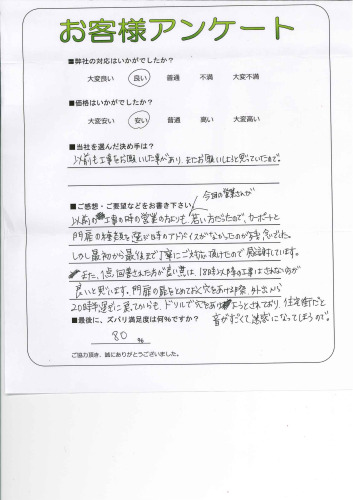 お客様アンケート
■弊社の対応はいかがでしたか?
大変良い 良い 普通 不満 大変不満
■価格はいかがでしたか?
大変安い 安い 普通 高い 大変高い
■当社を選んだ決め手は?
以前も工事をお願いした事があり、またお願いしようと思っていたので。
■ご感想・ご要望などをお書き下さい。
今回の営業さんが
以前の工事の時の営業の方よりも若い方だったので、カーポートと
門扉の種類を選ぶ時のアドバイスがなかったのが残念でした。
しかし最初から最後まで丁寧にご対応頂けたので感謝しています。
また、1点 回答された方が良い点は、18時以降の工事はされない方が
良いと思います。門扉の扉をとめておく穴をあける際、外出から
20時半過ぎに戻ってからも、ドリルで穴をあけようとされており、住宅街だと
音がすごくて迷惑になってしまうので。
■最後に、ズバリ満足度は何%ですか?
80 %
ご協力頂き、誠にありがとうございました。